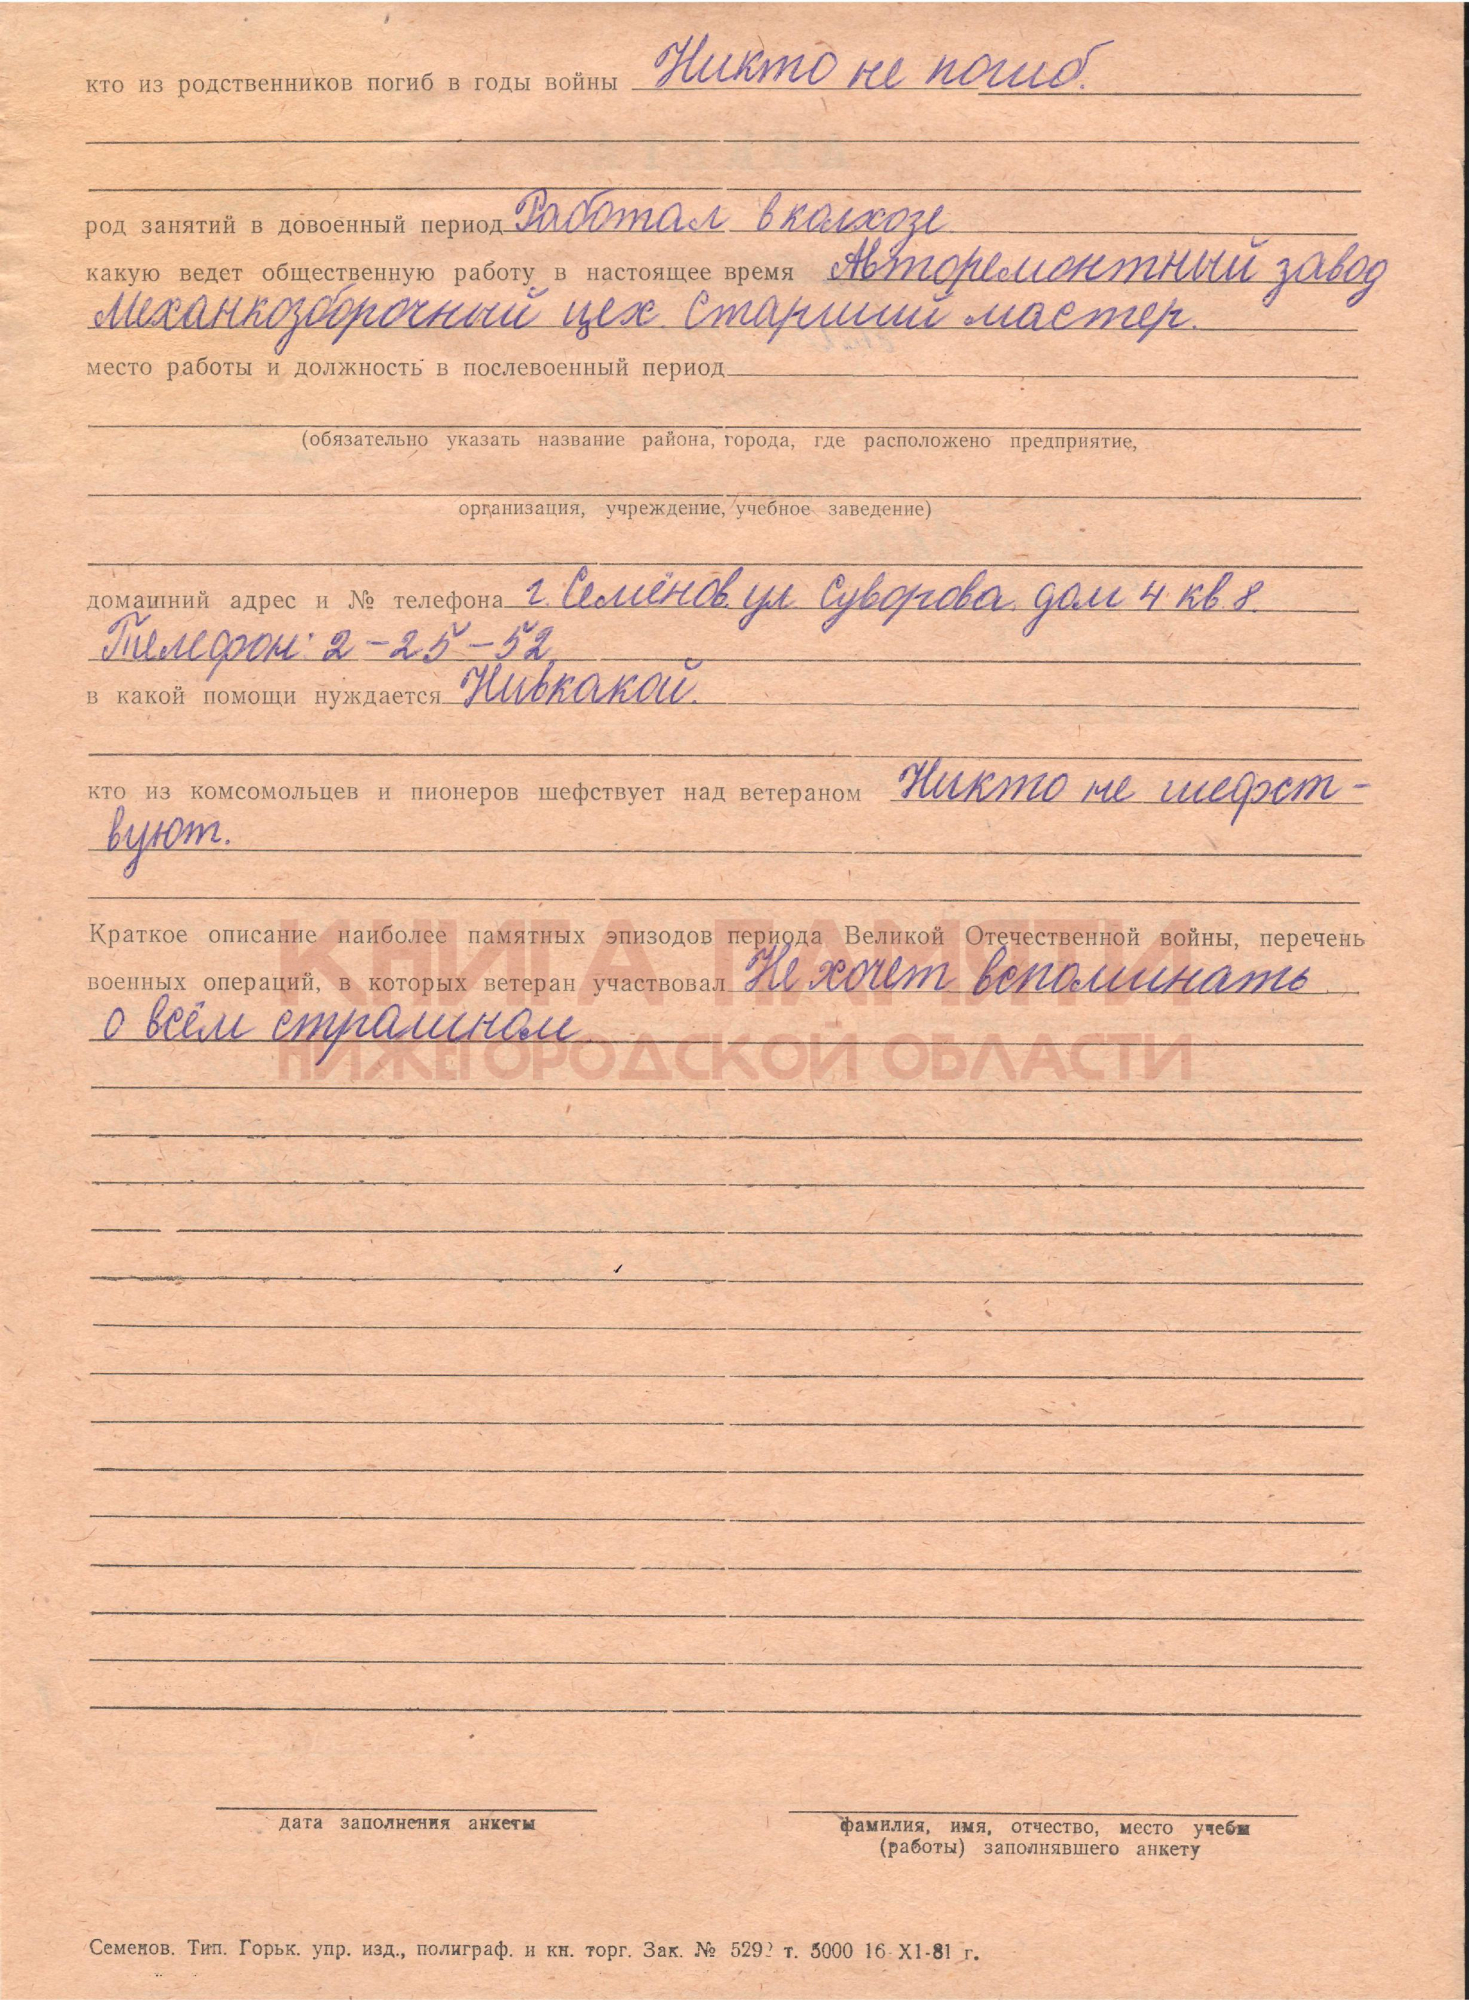 кто из родственников погиб в годы войны Никто не погиб.
род занятий в довоенный период Работал в колхозе
какую ведет общественную работу в настоящее время Авторемонтный завод
Механкозборочный цех. Старший мастер.
место работы и должность в послевоенный период
(обязательно указать название района, города, где расположено предприятие,
организация, учреждение, учебное заведение)
домашний адрес и № телефона г. Семёнов. ул. Суворова. дом 4 кв 8.
Телефон: 2-25-52
в какой помощи нуждается Нивкакой.
кто из комсомольцев и пионеров шефствует над ветераном Никто не шефст-
вуют.
КНИГА ПАМЯТИ
Краткое описание наиболее памятных эпизодов периода Великой Отечественной войны, перечень
военных операций, в которых ветеран участвовал Не хочет вспоминать
о всём страшном
НИЖЕГОРОДСКОЙ ОБЛАСТИ
дата заполнения анкеты
фамилия, имя, отчество, место учебы
(работы) заполнявшего анкету
Семенов. Тип. Горьк. упр. изд., полиграф. и кн. торг. Зак. № 5292 т. 5000 16-XI-81 г.